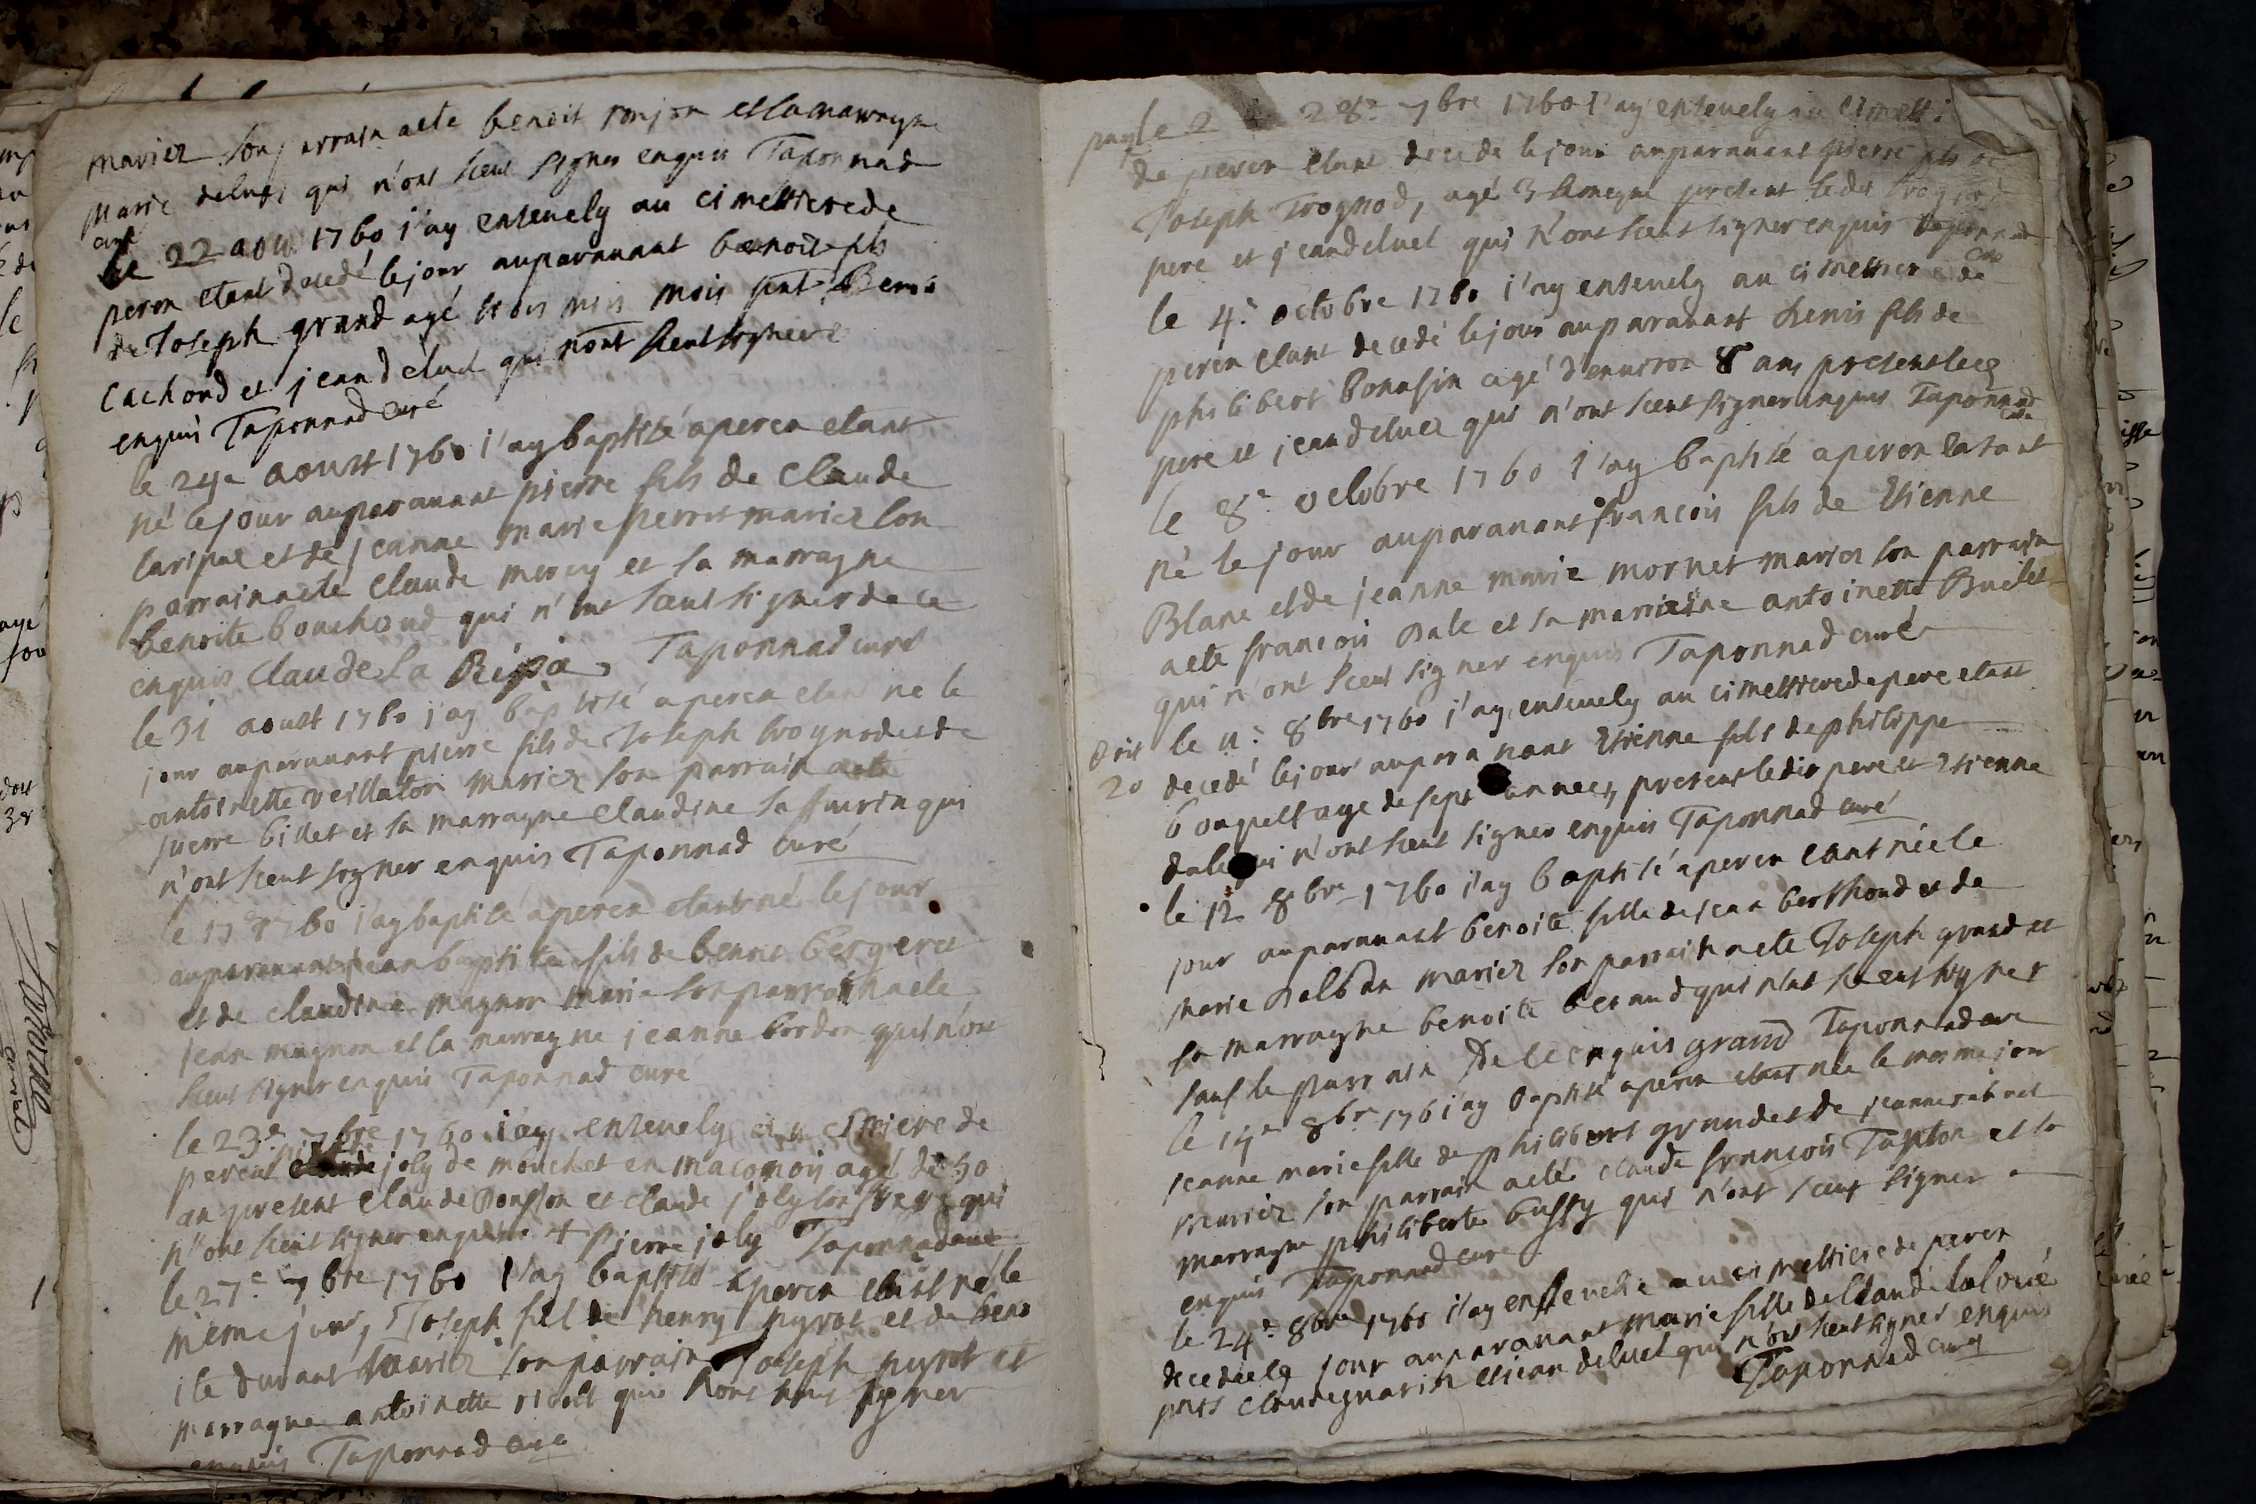 mariez son parrain aete benoit ronjon et la marragne
marie deluel qui n'ont sceut signer enquis Taponnad
curé
le 22 aou 1760 j'ay ensevely au cimettiere de
peron etant decedé le jour auparavant benoit fils
de Joseph grand agé trois mois pnt Benoi
Cachond et jean deluel qui n'ont sceut signer
enquis Taponnad curé
le 24e aoust 1760 j'ay baptisé a peron etant
né le jour auparavant pierre fils de Claude
et de jeanne marie perret mariez son
parrain aete Claude mercy et sa marragne
benoite bouchoud qui n'ont sceut signer de ce
enquis Claude la Taponnad curé
le 31 aoust 1760 j'ay baptisé a peron etant né le
jour auparavant pierre fils de Joseph trognod et de
antoinette veillaton mariez son parrain aete
pierre billet et sa marragne Claudine qui
n'ont sceut signer enquis Taponnad curé
le 1760 j'ay baptisé a peron etant né le jour
auparavant jean baptiste fils de benoit bergeret
et de claudine magnon marie son parrain aete
jean magnon et la marragne jeanne bordon qui n'ont
sceut signer enquis Taponnad curé
le 23e 7bre 1760 j'ay ensevely au de
joly de mouchet en maconnois agé de 50
an present claude et claude joly son frere qui
n'ont sceut signer enquis + pierre joly Taponnad curé
le 27e 7bre 1760 j'ay baptisé a peron etant né le
meme jour, Joseph fils de henry pyrot et de beno
ite durant mariez son parrain Joseph pyrot et
marragne antoinette qui n'ont sceut signer
enquis Taponnad curé
payé le 28e 7bre 1760 j'ay ensevely au cimetti
de peron etant decede le jour auparavant pierre fils de
Joseph Trognod, agé 3 semegne present ledit Trognod
pere et jean deluel qui n'ont sceut signer enquis Taponnad
curé
le 4e octobre 1760 j'ay ensevely au cimettiere de
peron etant decedé le jour auparavant denis fils de
philibert bonnsin agé d'environ 8 ans present led
pere et jean deluel qui n'ont sceut signer enquis Taponnad
curé
le 8e octobre 1760 j'ay baptisé a peron etant
né le jour auparavant francois fils de Etienne
Blanc et de jeanne marie mornet mariez son parrain
aete francois Dale et sa marraine antoinette
qui n'ont sceut signer enquis Taponnad curé
doit le 11e 8bre 1760 j'ay ensevely au cimettiere de pere etant
20 decedé le jour auparavant Etienne fils de philippe
bouquelt age de sept années, present ledit pere et Etienne
dale qui n'ont sceut signer enquis Taponnad curé
le 12 8bre 1760 j'ay baptisé a peron etant née le
jour auparavant benoite fille de jean berthoud et de
marie Dalban mariez son parrain aete Joseph grand et
sa marragne benoite beraud qui n'ont sceut signer
sauf le parrain De ce enquis grand Taponnad curé
le 14e 8bre 176 j'ay baptisé a peron etant née le mesme jour
jeanne marie fille de philibert grand et de jeanne
mariez son parrain aeté claude francois Tapton et sa
marragne philiberte bussy qui n'ont sceut signer
enquis Taponnad curé
le 24e 8bre 1760 j'ay ensevelie au cimettiere de peron
decedée le jour auparavant marie fille de Claude laloué
pnts et jean deluel qui n'ont sceut signer enquis
Taponnad curé